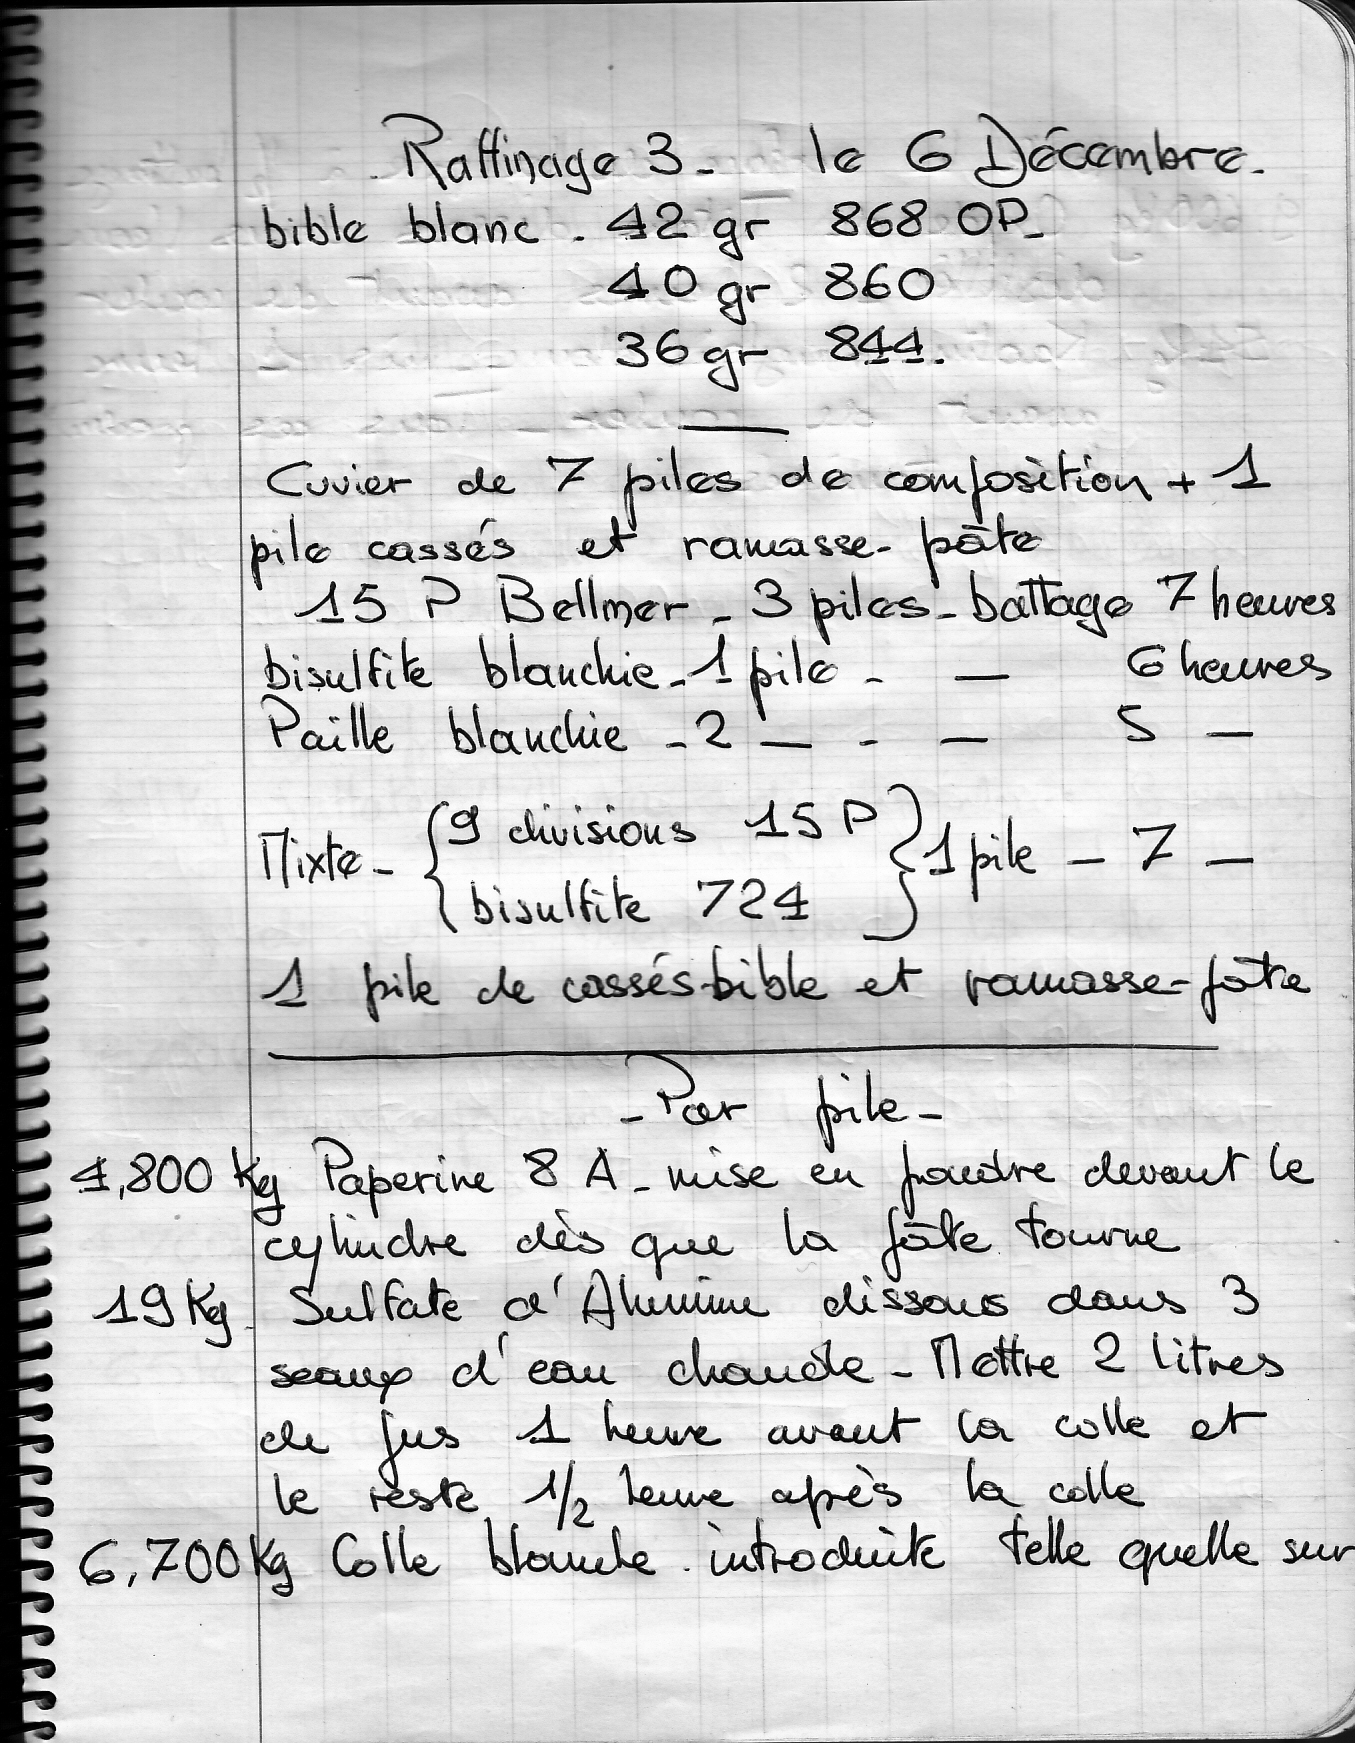 Raffinage 3. le 6 Décembre.
bible blanc. 42 gr 868 OP.
40 gr 860
36 gr 844.
Cuvier de 7 piles de composition + 1
pile cassés et ramasse-pâte
15 P Bellmer - 3 piles - battage 7 heures
bisulfite blanchie - 1 pile - — 6 heures
Paille blanchie - 2 — - — 5 —
Mixte - { 9 divisions 15 P
bisulfite 724 } 1 pile — 7 —
1 pile de cassés-bible et ramasse-pâte
- Par pile -
4,800 Kg Paperine 8 A - mise en poudre devant le
cylindre dès que la pâte tourne
19 Kg. Sulfate d'Alumine dissous dans 3
seaux d'eau chaude - Mettre 2 litres
de jus 1 heure avant la colle et
le reste 1/2 heure après la colle
6,700 Kg Colle blanche introduite telle quelle sur